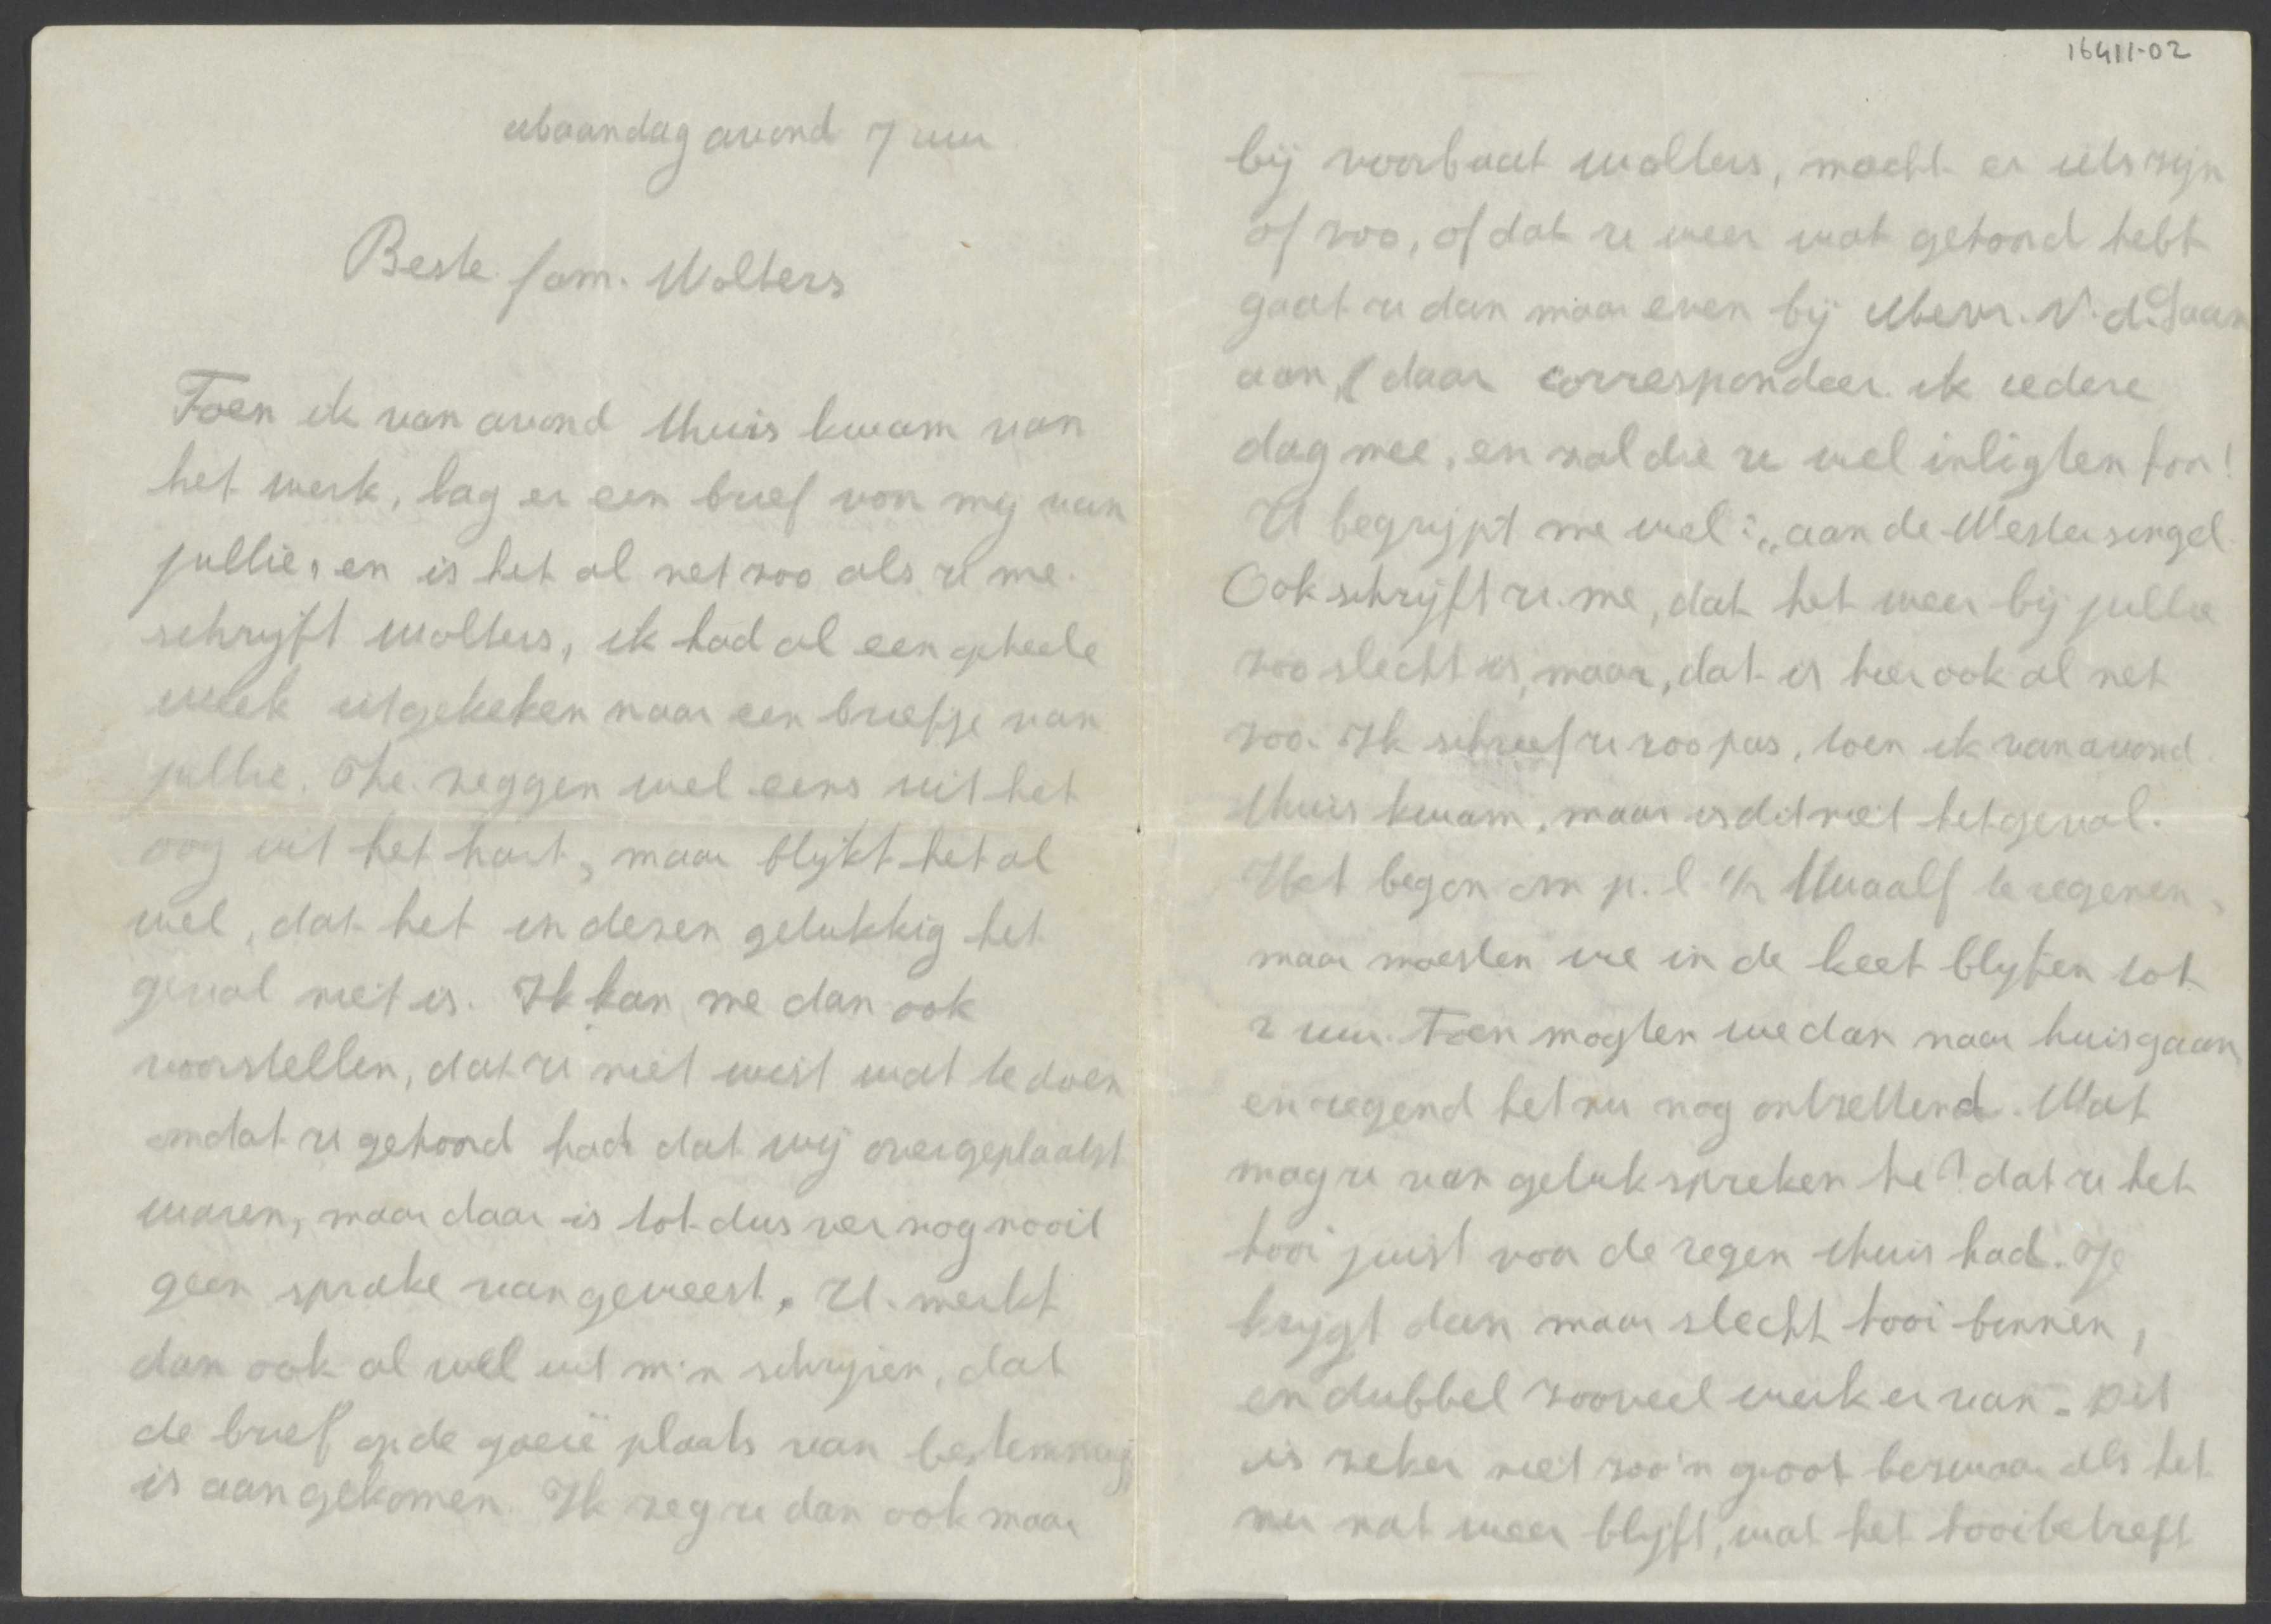 16411-02
Maandag avond 7 uur
Beste fam. Wolters
Toen ik van avond thuis kwam van
het werk, lag er een brief voor mij van
jullie, en is het al net zoo als u me
schrijft Wolters, ik had al een geheele
week uitgekeken naar een briefje van
jullie. Ze zeggen wel eens uit het
oog uit het hart, maar blijkt het al
wel, dat het in dezen gelukkig het
geval niet is. Ik kan me dan ook
voorstellen, dat u niet wist wat te doen
omdat u gehoord had dat wij overgeplaatst
waren, maar daar is tot dus ver nog nooit
geen sprake van geweest. U merkt
dan ook al wel uit m'n schrijven, dat
de brief op de goeië plaats van bestemming
is aangekomen. Ik zeg u dan ook maar
bij voorbaat Wolters, macht er iets zijn
of zoo, of dat u weer wat gehoord hebt
gaat u dan maar even bij Mevr. V. d. Laan
aan, daar correspondeer ik iedere
dag mee, en zal die u wel inligten hoor!
U begrijpt me wel: „aan de Westersingel
Ook schrijft u me, dat het weer bij jullie
zoo slecht is, maar, dat is hier ook al net
zoo. Ik schreef u zoo pas, toen ik van avond
thuis kwam, maar is dit niet het geval.
Het begon om p. l. ½ twaalf te regenen,
maar moesten we in de keet blijven tot
2 uur. Toen mogten we dan naar huis gaan,
en regend het nu nog ontzettend. Wat
mag u van geluk spreken he? dat u het
hooi juist voor de regen thuis had. Je
krijgt dan maar slecht hooi binnen,
en dubbel zooveel werk er van. Dit
is zeker niet zoo'n groot bezwaar als het
nu nat weer blijft, wat het hooi betreft